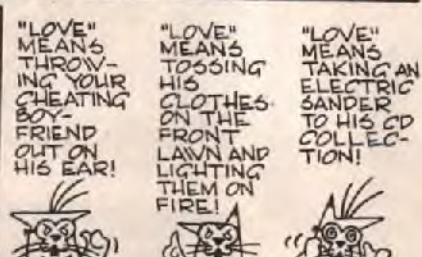 "LOVE"
MEANS
THROW-
ING YOUR
CHEATING
BOY-
FRIEND
OUT ON
HIS EAR!
"LOVE"
MEANS
TOSSING
HIS
CLOTHES
ON THE
FRONT
LAWN AND
LIGHTING
THEM ON
FIRE!
"LOVE"
MEANS
TAKING AN
ELECTRIC
SANDER
TO HIS CD
COLLEC-
TION!